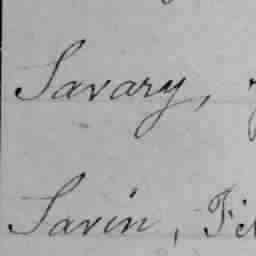 Savary,
Savin, Fi